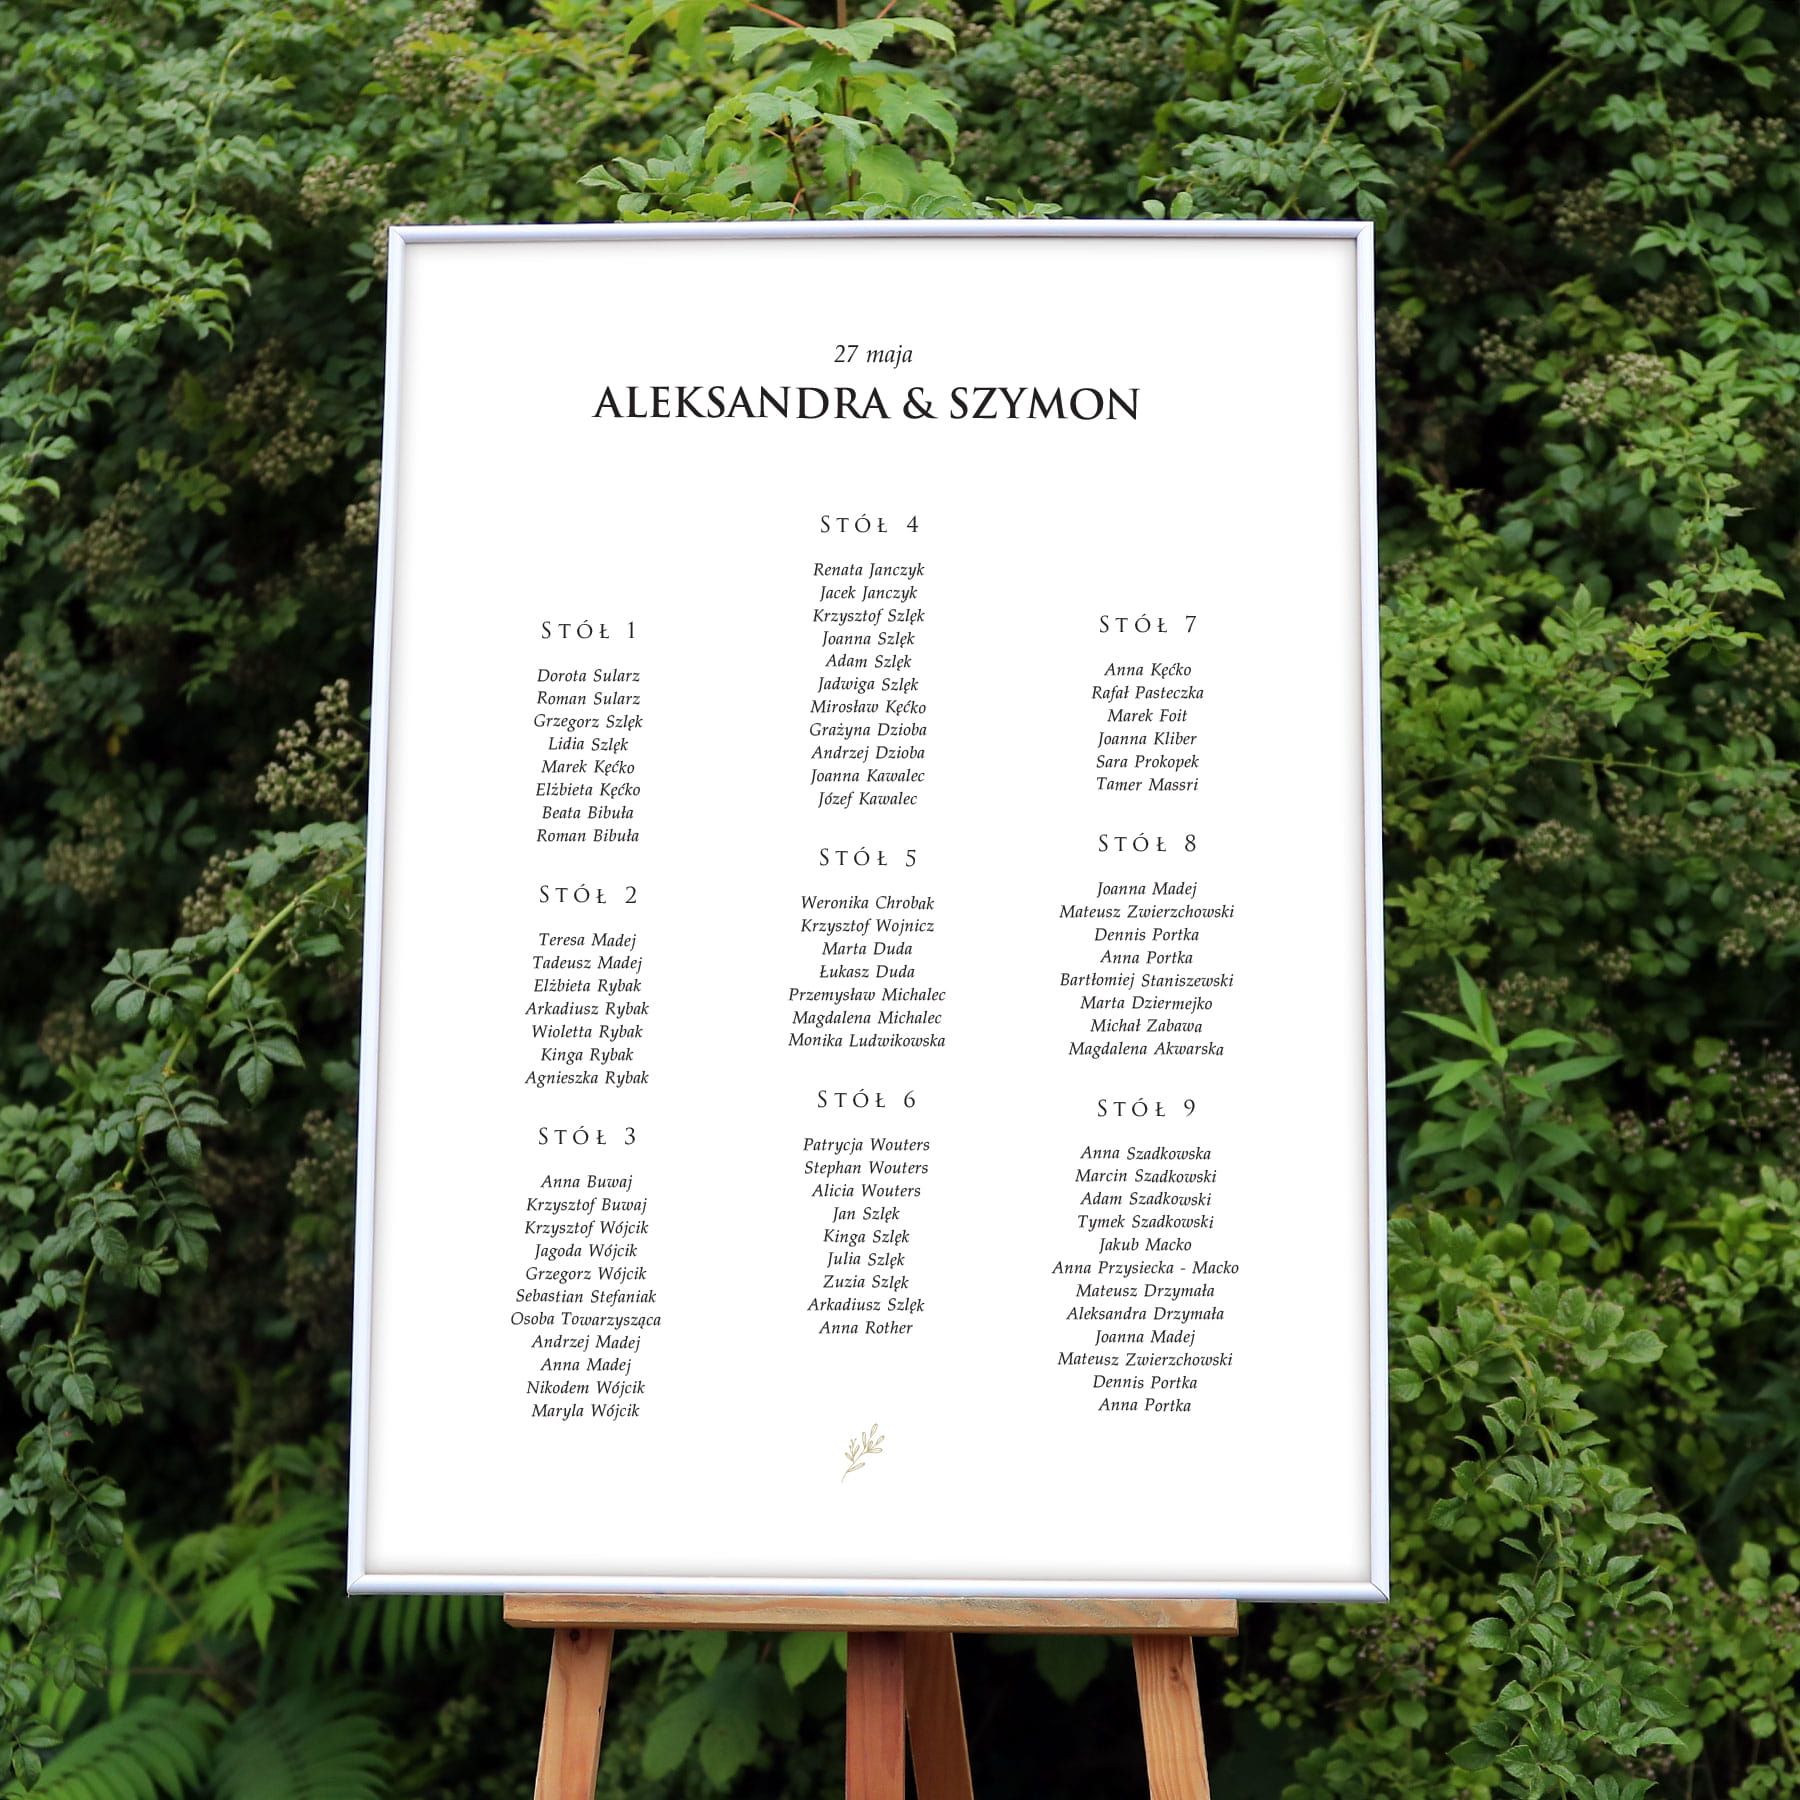 27 maja
ALEKSANDRA & SZYMON
STÓŁ 1
Dorota Sularz
Roman Sularz
Grzegorz Szlęk
Lidia Szlęk
Marek Kęćko
Elżbieta Kęćko
Beata Bibuła
Roman Bibuła
STÓŁ 2
Teresa Madej
Tadeusz Madej
Elżbieta Rybak
Arkadiusz Rybak
Wioletta Rybak
Kinga Rybak
Agnieszka Rybak
STÓŁ 3
Anna Buwaj
Krzysztof Buwaj
Krzysztof Wójcik
Jagoda Wójcik
Grzegorz Wójcik
Sebastian Stefaniak
Osoba Towarzysząca
Andrzej Madej
Anna Madej
Nikodem Wójcik
Maryla Wójcik
STÓŁ 4
Renata Janczyk
Jacek Janczyk
Krzysztof Szlęk
Joanna Szlęk
Adam Szlęk
Jadwiga Szlęk
Mirosław Kęćko
Grażyna Dzioba
Andrzej Dzioba
Joanna Kawalec
Józef Kawalec
STÓŁ 5
Weronika Chrobak
Krzysztof Wojnicz
Marta Duda
Łukasz Duda
Przemysław Michalec
Magdalena Michalec
Monika Ludwikowska
STÓŁ 6
Patrycja Wouters
Stephan Wouters
Alicia Wouters
Jan Szlęk
Kinga Szlęk
Julia Szlęk
Zuzia Szlęk
Arkadiusz Szlęk
Anna Rother
STÓŁ 7
Anna Kęćko
Rafał Pasteczka
Marek Foit
Joanna Kliber
Sara Prokopek
Tamer Massri
STÓŁ 8
Joanna Madej
Mateusz Zwierzchowski
Dennis Portka
Anna Portka
Bartłomiej Staniszewski
Marta Dziermejko
Michał Zabawa
Magdalena Akwarska
STÓŁ 9
Anna Szadkowska
Marcin Szadkowski
Adam Szadkowski
Tymek Szadkowski
Jakub Macko
Anna Przysiecka - Macko
Mateusz Drzymała
Aleksandra Drzymała
Joanna Madej
Mateusz Zwierzchowski
Dennis Portka
Anna Portka